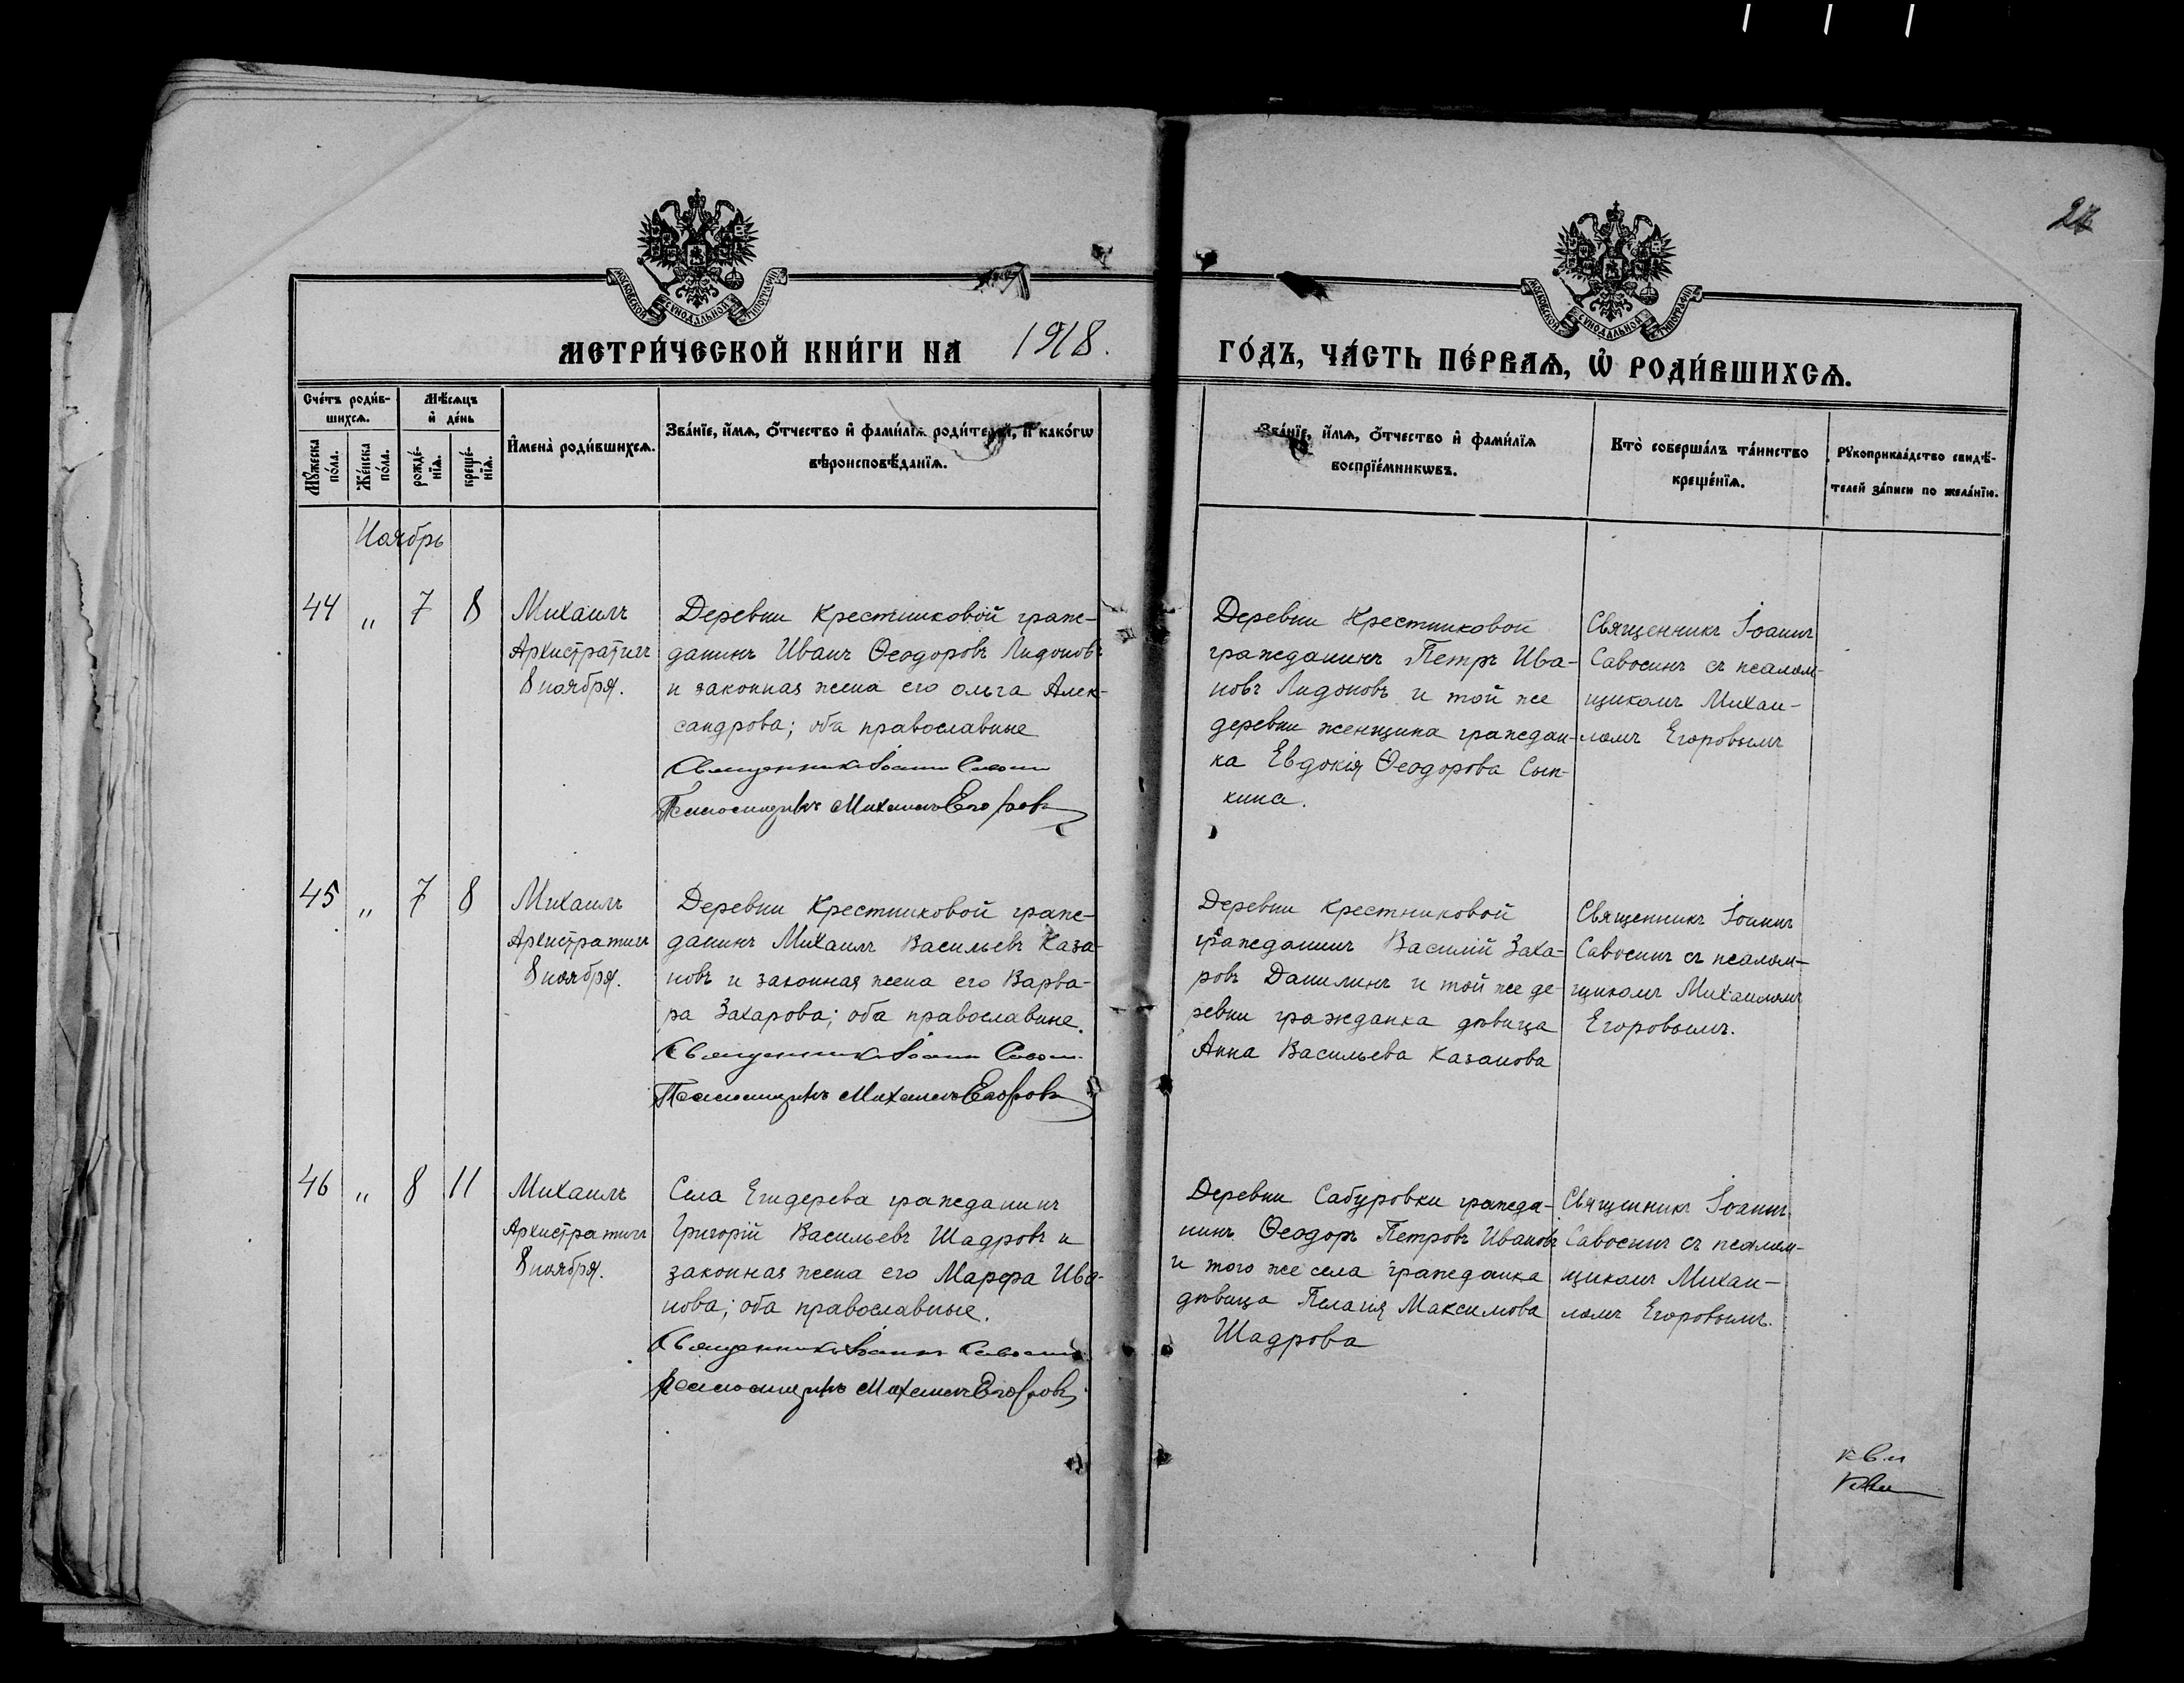 27
МОСКОВСКОЙ СѴНОДАЛЬНОЙ ТИПОГРАФІИ
МОСКОВСКОЙ СѴНОДАЛЬНОЙ ТИПОГРАФІИ
МЕТРИ́ЧЕСКОЙ КНИ́ГИ НА 1918. ГО́ДЪ, ЧА́СТЬ ПЕ́РВАѦ, Ѡ҆ РОДИ́ВШИХСѦ.
Сче́тъ роди́в-
шихсѧ.
Мꙋ́жеска по́ла.
Же́нска по́ла.
Мѣ́сѧцъ
и҆ де́нь
рожде́-
нїѧ.
креще́-
нїѧ.
И҆мена̀ роди́вшихсѧ.
Зва́нїе, и҆́мѧ, ѻ҆́тчество и҆ фами́лїѧ роди́телей, и҆ како́гѡ
вѣроисповѣ́данїѧ.
Зва́нїе, и҆́мѧ, ѻ҆́тчество и҆ фами́лїѧ
воспрїе́мникѡвъ.
Кто̀ соверша́лъ та́инство
креще́нїѧ.
Рꙋкоприкла́дство свидѣ́-
телей за́писи по жела́нїю.
Ноябрь
44 " 7 8
Михаилъ
Архистратигъ
8 ноября.
Деревни Крестниковой граж-
данинъ Иванъ Ѳеодоровъ Лидоновъ
и законная жена его Ольга Алек-
сандрова; оба православные
Священникъ Іоаннъ Савосин
Псаломщикъ Михаилъ Егоровъ
Деревни Крестниковой
гражданинъ Петръ Ива-
новъ Лидоновъ и той же
деревни женщина граждан-
ка Евдокія Ѳеодорова Сып-
кина.
Священникъ Іоаннъ
Савосинъ съ псалом-
щикомъ Михаи-
ломъ Егоровымъ
45 " 7 8
Михаилъ
Архистратигъ
8 ноября.
Деревни Крестниковой граж-
данинъ Михаилъ Васильевъ Каза-
новъ и законная жена его Варва-
ра Захарова; оба православные.
Священникъ Іоаннъ Савосин
Псаломщикъ Михаилъ Егоровъ
Деревни Крестниковой
гражданинъ Василій Заха-
ровъ Данилинъ и той же де-
ревни гражданка дѣвица
Анна Васильева Казанова
Священникъ Іоаннъ
Савосинъ съ псалом-
щикомъ Михаиломъ
Егоровымъ.
46 " 8 11
Михаилъ
Архистратигъ
8 ноября.
Села Егидерева гражданинъ
Григорій Васильевъ Шадровъ и
законная жена его Марѳа Ива-
нова; оба православные.
Священникъ Іоаннъ Савосинъ
Псаломщикъ Михаилъ Егоровъ
Деревни Сабуровки гражда-
нинъ Ѳеодоръ Петровъ Ивановъ
и того же села гражданка
дѣвица Пелагія Максимова
Шадрова
Священникъ Іоаннъ
Савосинъ съ псалом-
щикомъ Михаи-
ломъ Егоровымъ.